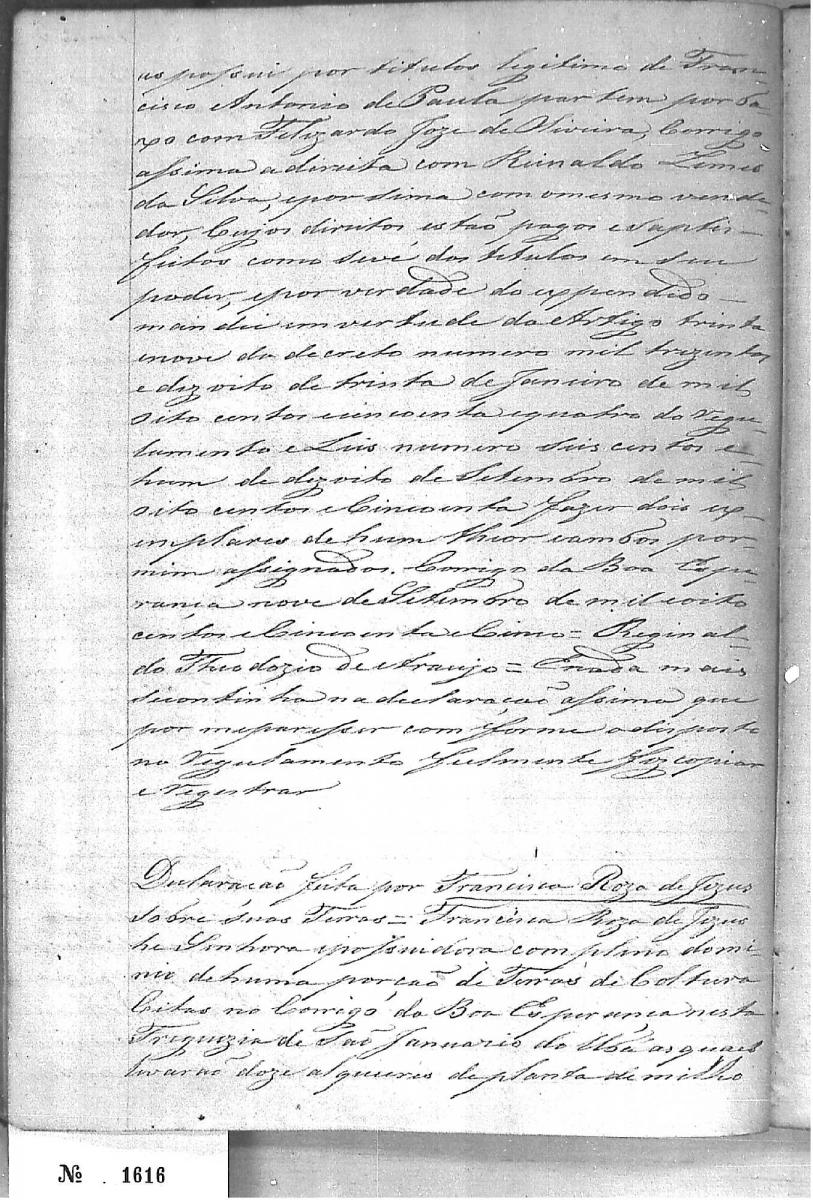 as possui por titulos legitimo de Fran-
cisco Antonio de Paula partem por ba-
xo com Felizardo Joze de Oliveira, Corrigo
assima a direita com Reinaldo Lemes
da Silva, e por sima com o mesmo vende-
dor, Cujos direitos estaõ pagos e saptis-
feitos como sevé dos titulos em seu
poder, e por verdade do expendido
mandei em vertude do Artigo trinta
e nove do decreto numero mil trezentos
e dizoito de trinta de Janeiro de mil
oito centos e cincoenta e quatro do regu-
lamento e Leis numero seis centos e
hum de dizoito de Setembro de mil
oito centos e Cincoenta fazer dois ex-
emplares de hum theor e ambos por
mim assignados. Corrigo da Boa Espe-
rança nove de Setembro de mil e oito
centos e Cincoenta e Cinco = Reginal-
do Theodozio de Araujo = Enada mais
secontinha na declaracaõ assima que
por me paresser com forme o disposto
no regulamento fielmente fiz copiar
e registrar
Declaracaõ feita por Francisca Roza de Jezus
sobre suas Terras = Francisca Roza de Jezus
he Senhora e possuidora com pleno domi-
nio de huma porcaõ de Terras de Coltura
Citas no Corrigo da Boa Esperanca nesta
Freguezia de Saõ Januario do Ubá as quaes
levaraõ doze alqueires de planta de milho
Nº 1616